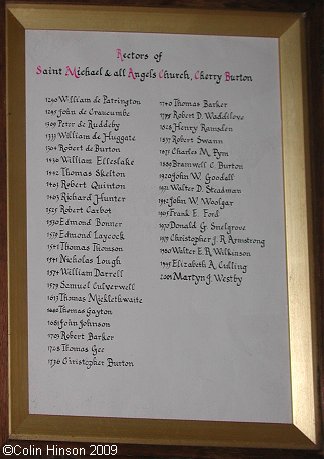 Rectors of
Saint Michael & all Angels Church, Cherry Burton
1240 William de Patrington
John de Craucumbe
1309 Peter de Ruddeby
1333 William de Huggate
Robert de Burton
1436 William Elleslake
Thomas Skelton
Robert Quinton
Richard Hunter
Robert Carbot
Edmond Bonner
Edmond Laycock
Thomas Thomson
Nicholas Lough
1574 William Darrell
1579 Samuel Culverwell
1613 Thomas Micklethwaite
Thomas Gayton
1681 John Johnson
1709 Robert Barker
Thomas Gee
1736 Christopher Burton
Thomas Barker
Robert D. Waddilove
1828 Henry Ramsden
Robert Swann
Charles M. Pym
Bramwell C. Burton
1920 John W. Goodall
Walter D. Steadman
John W. Woolgar
Frank E. Ford
1970 Donald G. Snelgrove
Christopher J R Armstrong
1980 Walter E. R. Wilkinson
1995 Elizabeth A. Culling
Martyn J. Westby
©Colin Hinson 2009